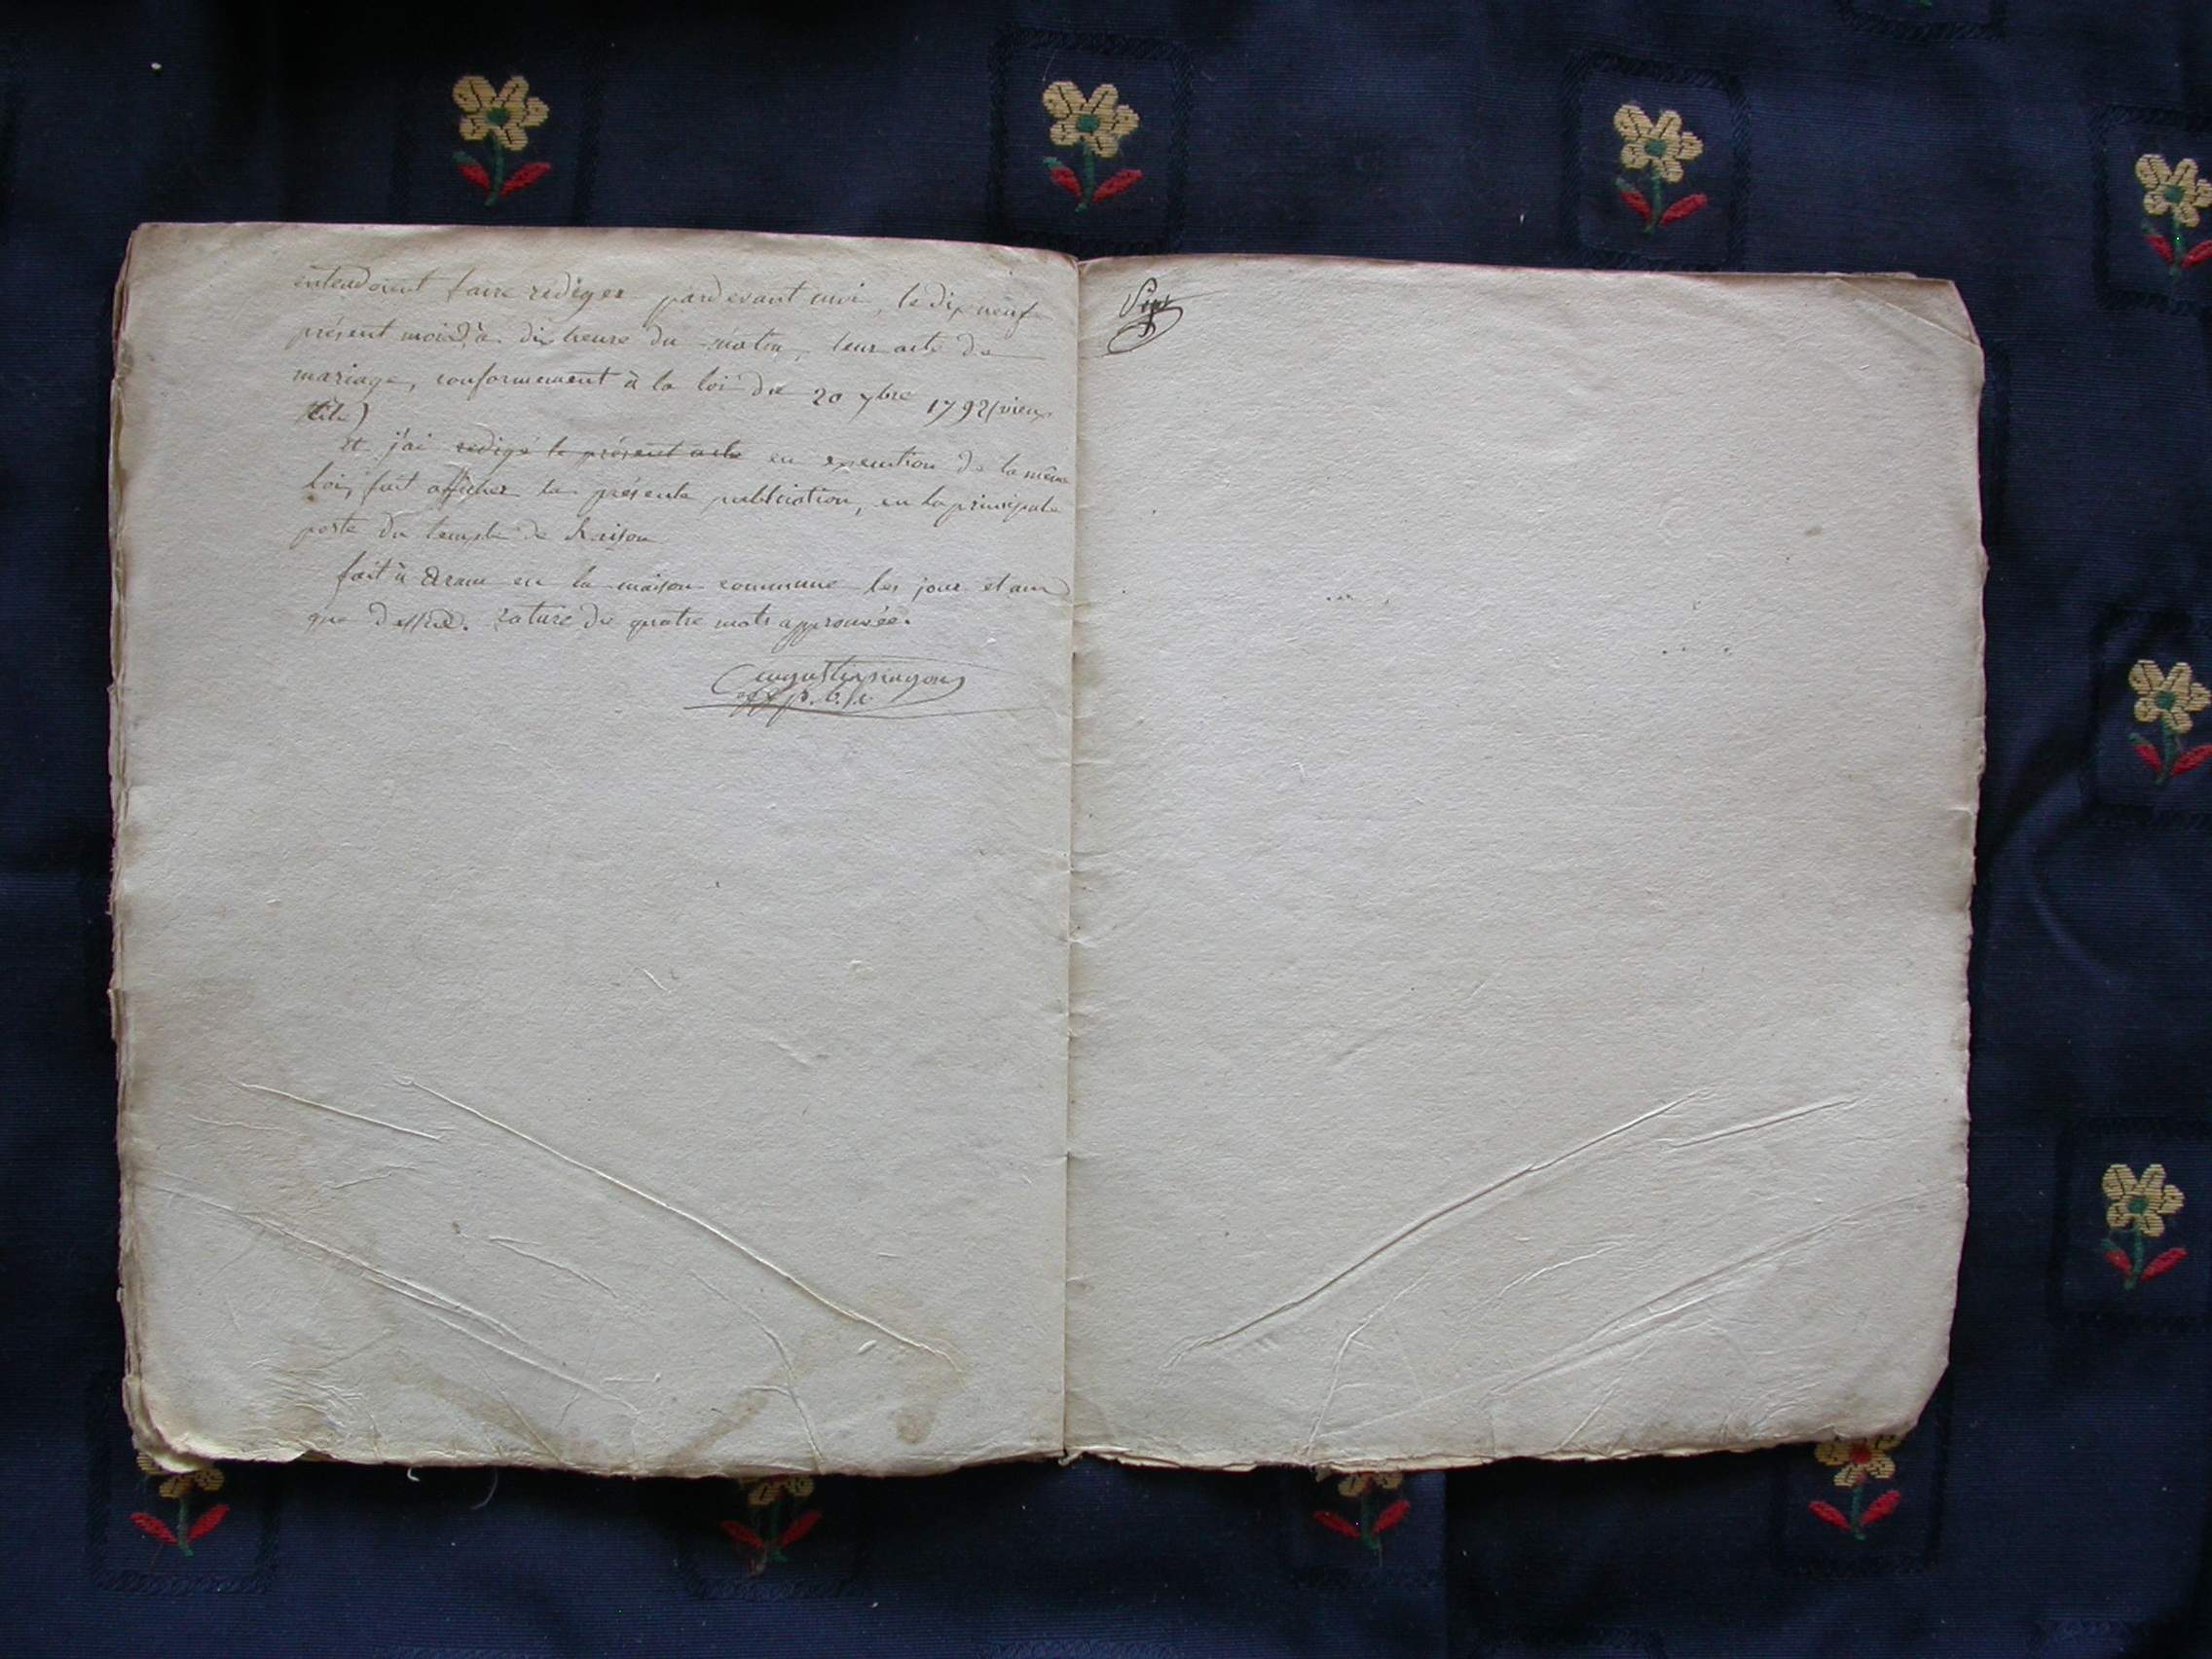 entendoient faire rediger pardevant moi, le dixneuf
présent mois, à dix heure du matin, leur acte de
mariage, conformement à la loi du 20 7bre 1792 (vieux
stile)
et j'ai redigé le présent acte en execution de la même
loi, fait afficher la présente publication, en la principale
porte du temple de Raison
fait à en la maison commune les jour et an
que dessus. rature de quatre mots approuvée.
off p.